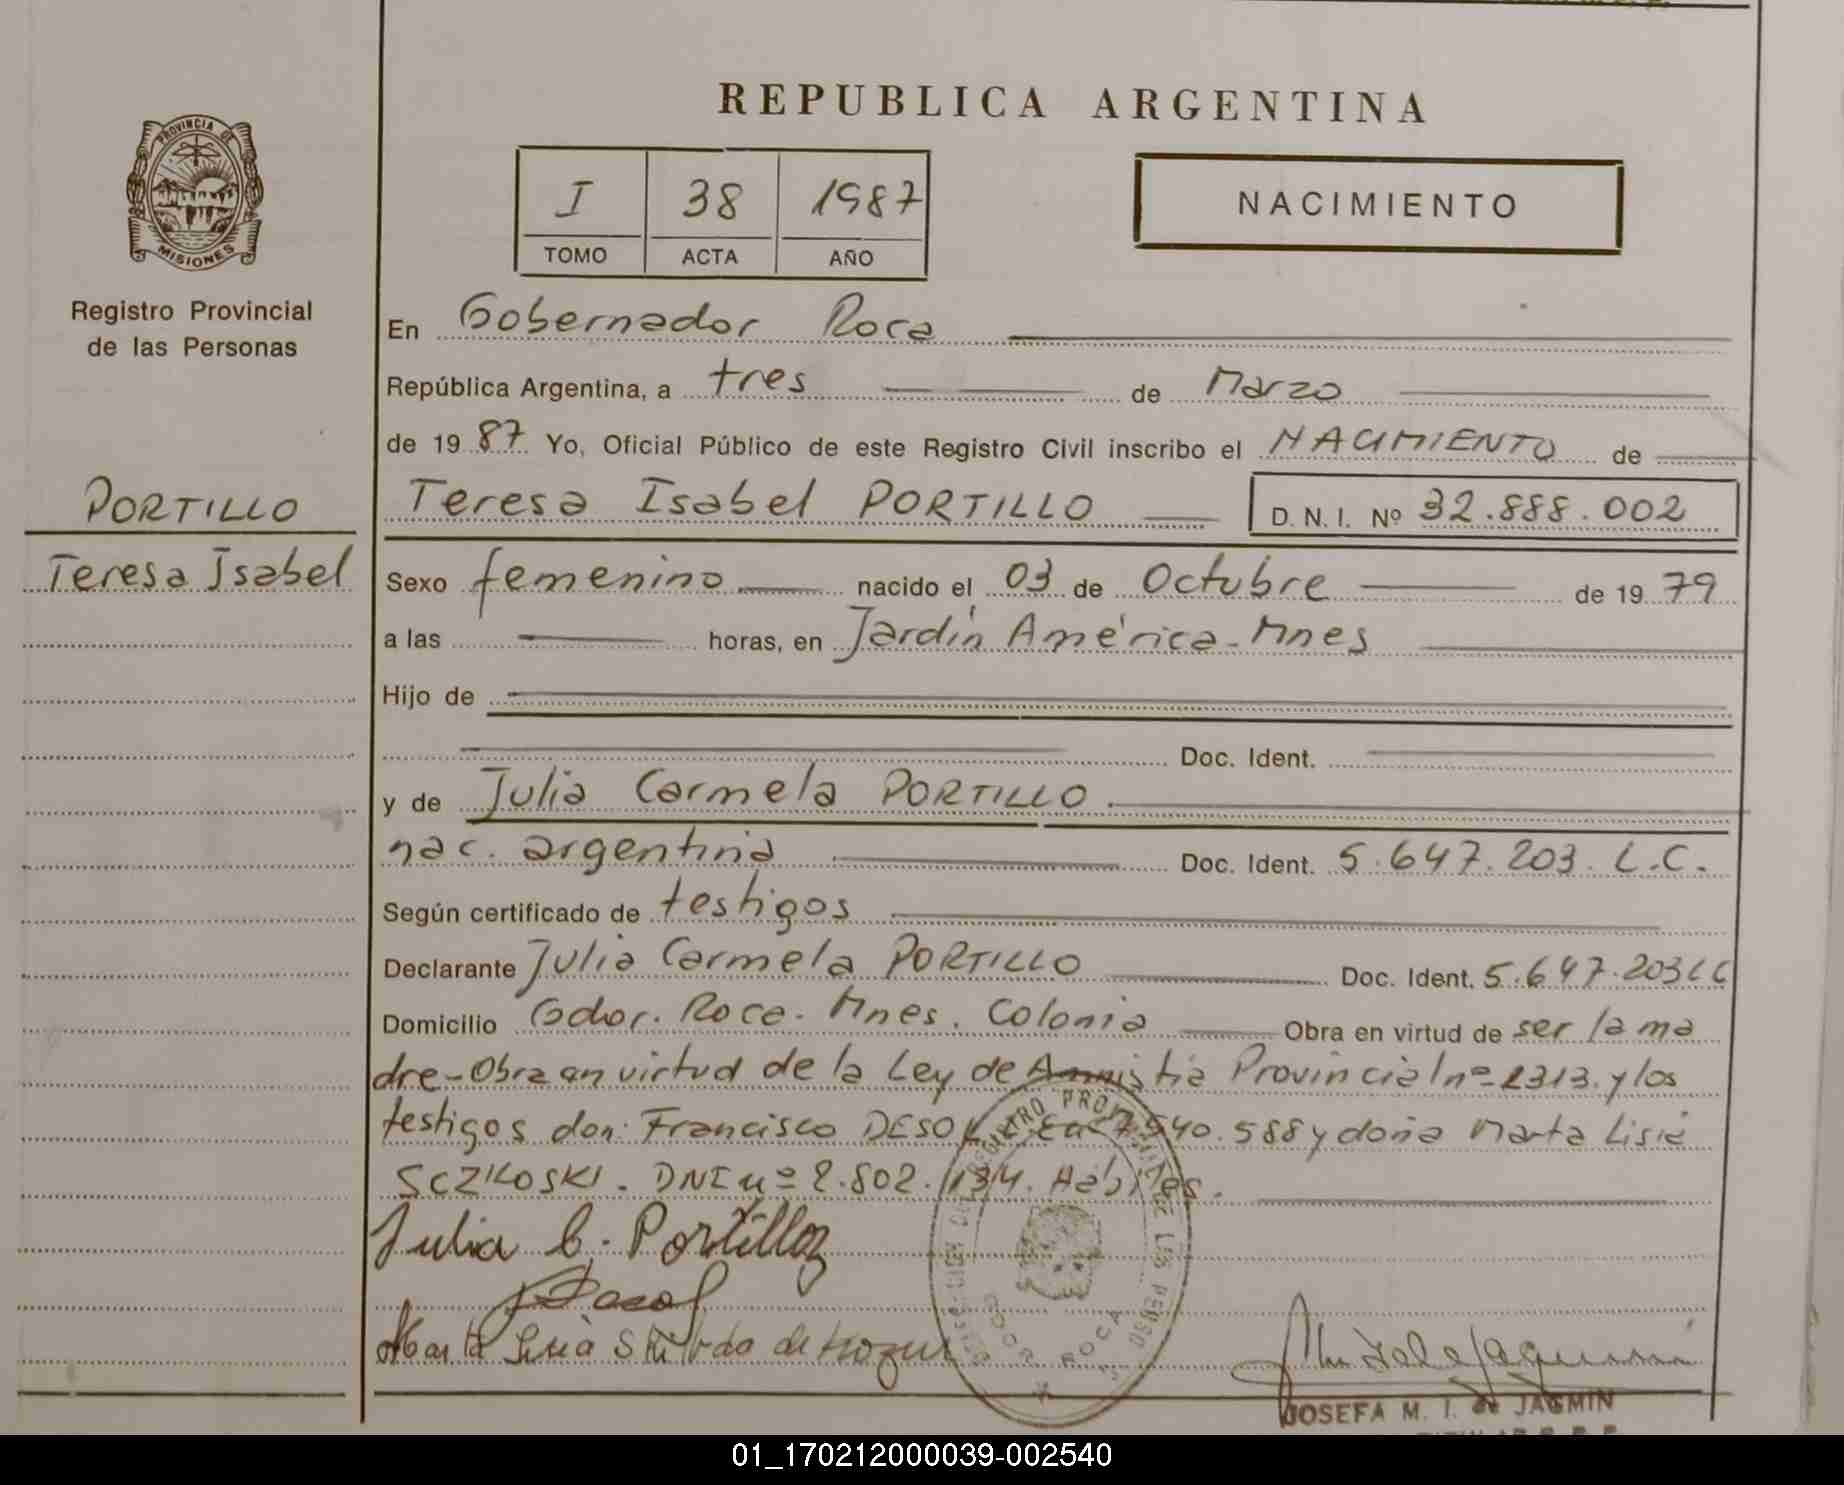 REPUBLICA ARGENTINA
PROVINCIA DE MISIONES
Registro Provincial
de las Personas
I 38 1987
TOMO ACTA AÑO
NACIMIENTO
En Gobernador Roca
República Argentina, a tres de Marzo
de 19 87 Yo, Oficial Público de este Registro Civil inscribo el NACIMIENTO de
PORTILLO
Teresa Isabel
Teresa Isabel PORTILLO D. N. I. Nº 32.888.002
Sexo femenino nacido el 03 de Octubre de 19 79
a las horas, en Jardín América - Mnes
Hijo de
Doc. Ident.
y de Julia Carmela PORTILLO.
nac. argentina Doc. Ident. 5.647.203. L.C.
Según certificado de testigos
Declarante Julia Carmela PORTILLO Doc. Ident. 5.647.203 LC
Domicilio Gdor. Roca. Mnes. Colonia Obra en virtud de ser la ma
dre - Obra en virtud de la Ley de Amnistia Provincial nº 2313. y los
testigos don: Francisco 940.588 y doña Marta Lisia
SCZIKOSKI. DNI nº 2.802.134. Hábiles.
Julia C. Portillo
Marta
GDOR ROCA
JOSEFA M. I. de JAGMIN
01_170212000039-002540